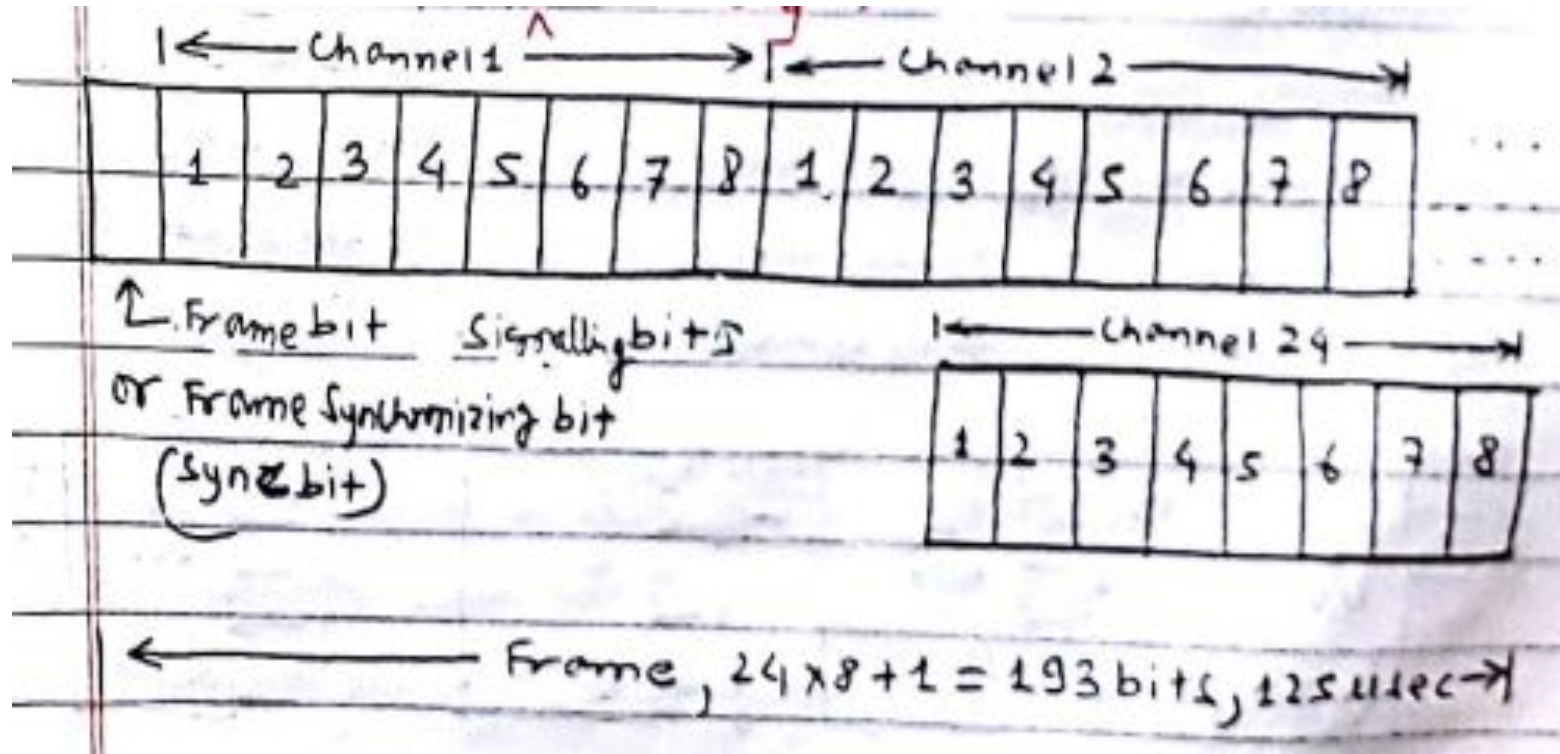 Channel 1 Channel 2
1 2 3 4 5 6 7 8 1 2 3 4 5 6 7 8 ....
Frame bit Signalling bits
or Frame Synchronizing bit
(Sync bit)
Channel 24
1 2 3 4 5 6 7 8
Frame, 24x8+1 = 193 bits, 125 usec